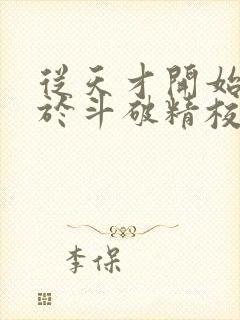 從天才開始
於斗破精校
李保